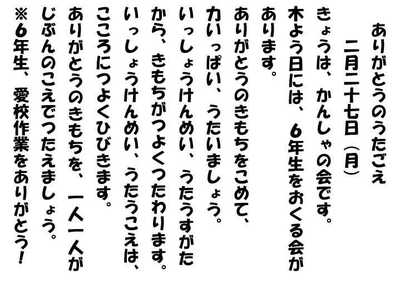 ありがとうのうたごえ
二月二十七日（月）
きょうは、かんしゃの会です。
木よう日には、6年生をおくる会が
あります。
ありがとうのきもちをこめて、
力いっぱい、うたいましょう。
いっしょうけんめい、うたうすがた
から、きもちがつよくつたわります。
いっしょうけんめい、うたうこえは、
こころにつよくひびきます。
ありがとうのきもちを、一人一人が
じぶんのこえでつたえましょう。
※6年生、愛校作業をありがとう！